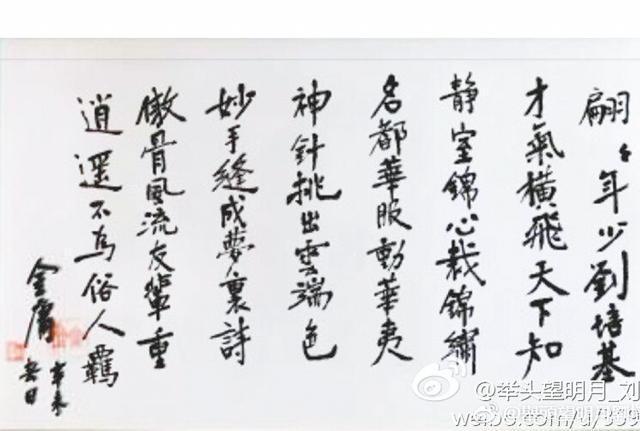 翩々年少劉培基
才氣橫飛天下知
靜室錦心裁錦繡
名都華服動華夷
神針挑出雲端色
妙手縫成夢裏詩
傲骨風流友輩重
逍遥不為俗人羈
金庸
辛未
@举头望明月_刘
weibo.com/u/399